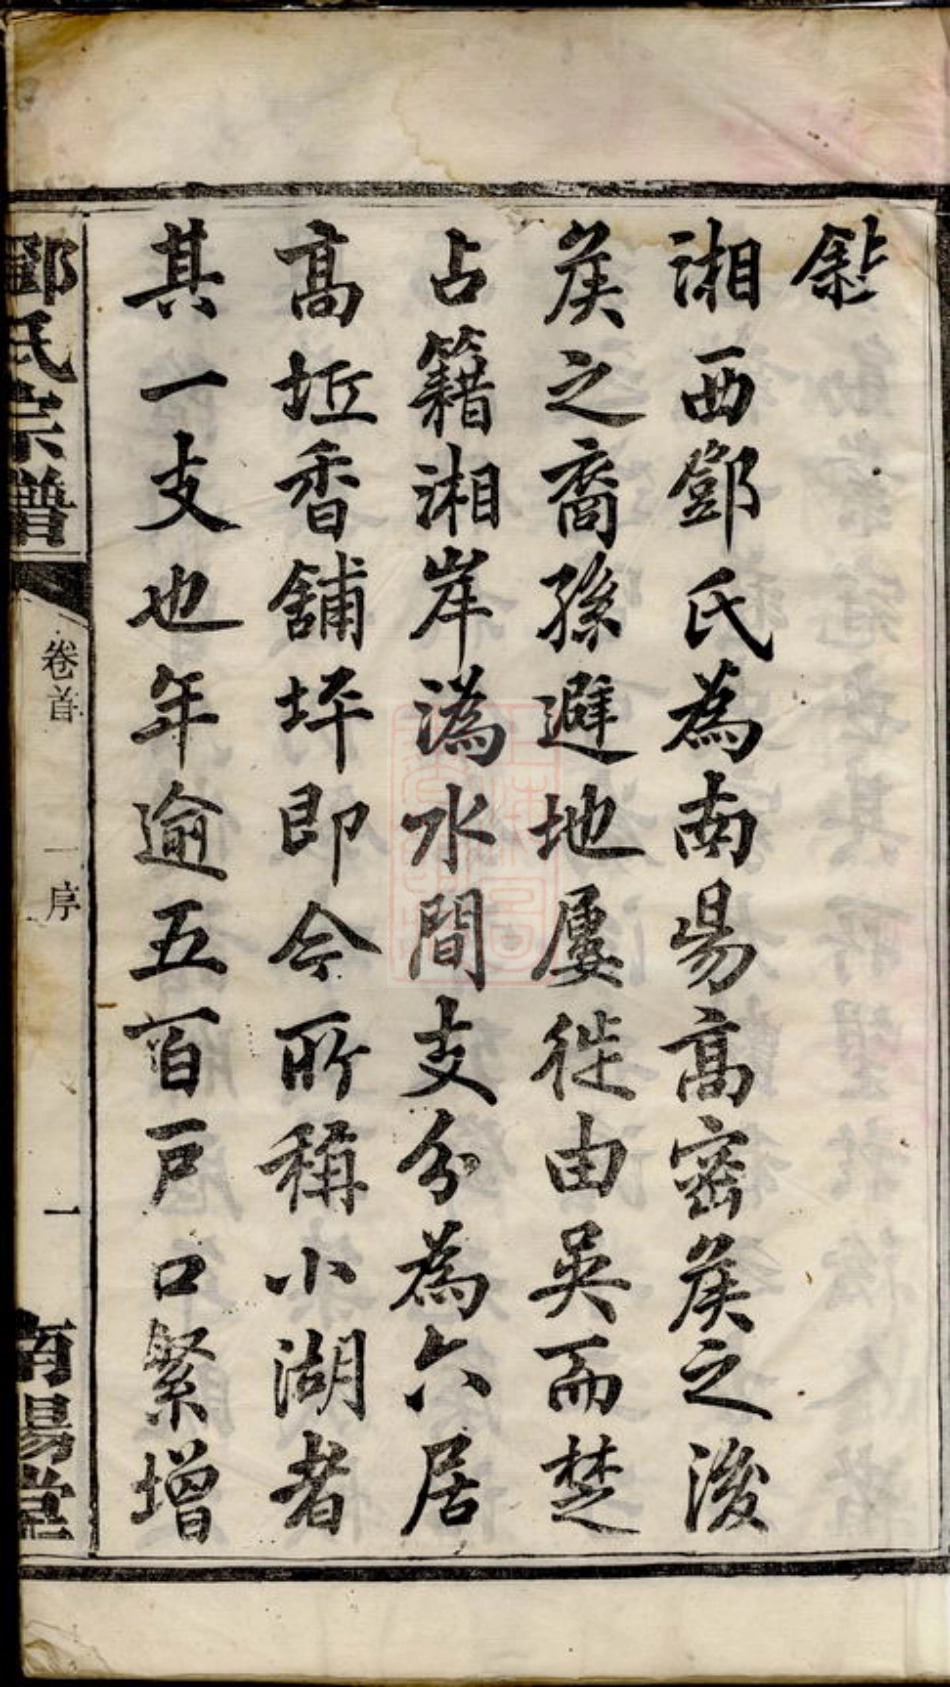 敘
湘西鄧氏為南陽髙密矦之後
矦之裔孫避地屢徙由吳而楚
占籍湘岸溈水間支分為六居
髙坵香舖坪即今所稱小湖者
其一支也年逾五百戶口繁增
鄧氏宗譜
卷首
序
一
南陽堂